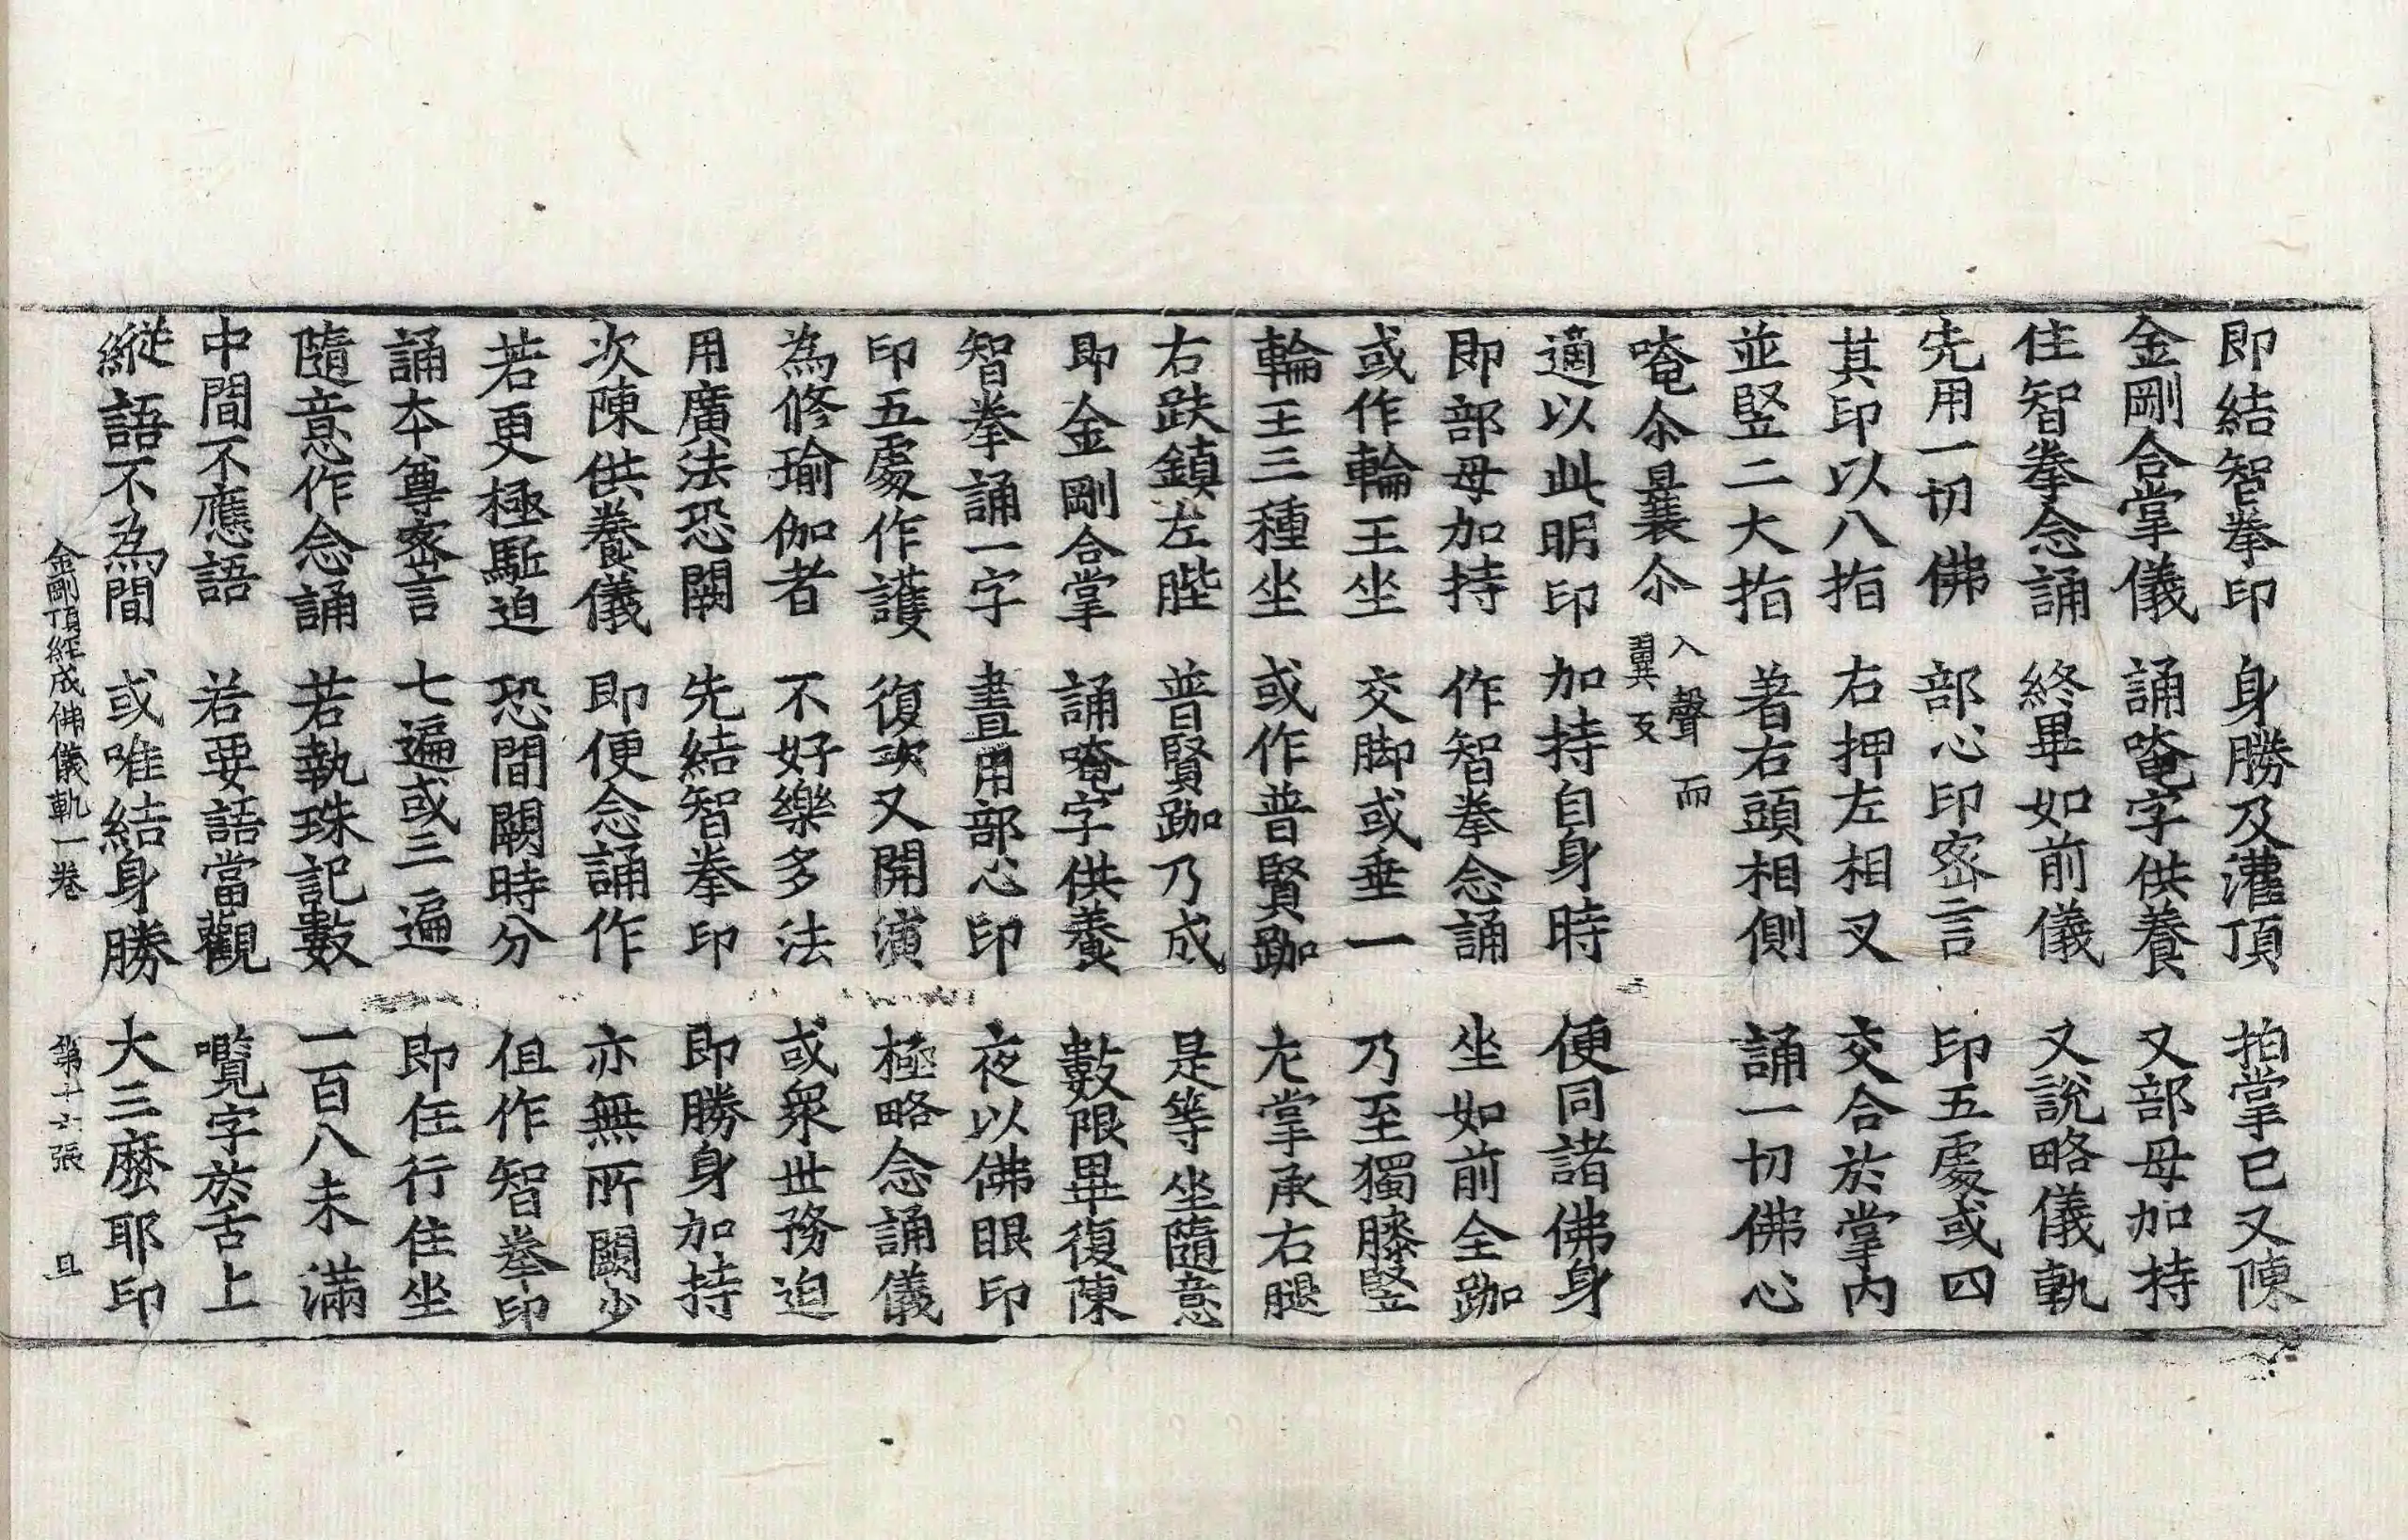 即結智拳印 身勝及灌頂 拍掌已又陳
金剛合掌儀 誦唵字供養 又部母加持
住智拳念誦 終畢如前儀 又說略儀軌
先用一切佛 部心印密言 印五處或四
其印以八指 右押左相叉 交合於掌内
並竪二大指 著右頭相側 誦一切佛心
唵尒曩尒 入聲而翼反
適以此明印 加持自身時 便同諸佛身
即部母加持 作智拳念誦 坐如前全跏
或作輪王坐 交脚或垂一 乃至獨膝竪
輪王三種坐 或作普賢跏 左掌承右腿
右趺鎮左䏶 普賢跏乃成 是等坐隨意
即金剛合掌 誦唵字供養 數限畢復陳
智拳誦一字 晝用部心印 夜以佛眼印
印五處作護 復次又開演 極略念誦儀
為修瑜伽者 不好樂多法 或衆世務迫
用廣法恐闕 先結智拳印 即勝身加持
次陳供養儀 即便念誦作 亦無所闕少
若更極駈迫 恐間闕時分 但作智拳印
誦本尊密言 七遍或三遍 即任行住坐
隨意作念誦 若執珠記數 一百八未滿
中間不應語 若要語當觀 囕字於舌上
縱語不為間 或唯結身勝 大三麽耶印
金剛頂經成佛儀軌一卷 第十六張 且